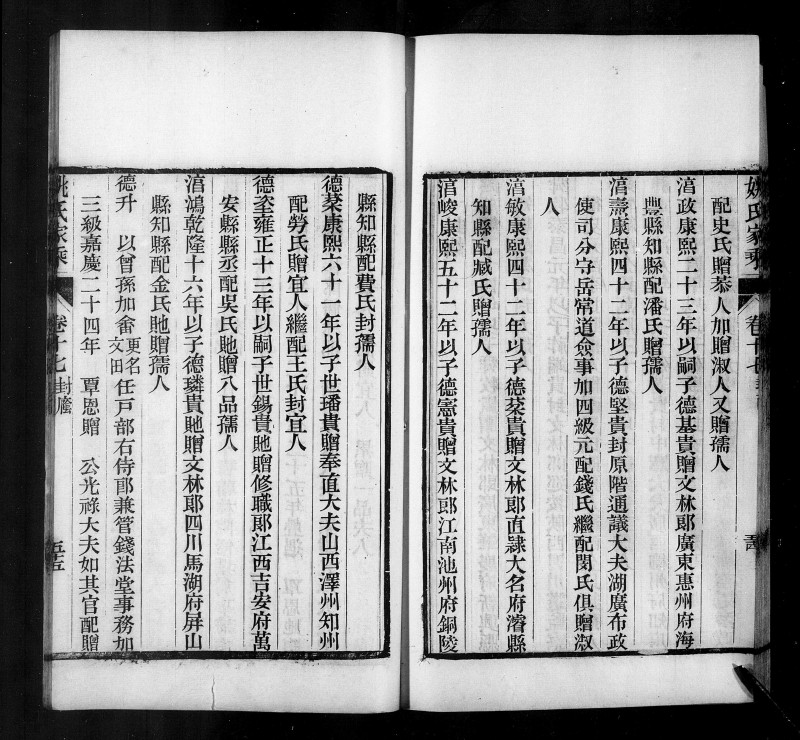 姚氏家乘
卷十七
配史氏贈恭人加贈淑人又贈孺人
淯政康熙二十三年以嗣子德基貴贈文林郎廣東惠州府海
豐縣知縣配潘氏贈孺人
淯燾康熙四十二年以子德堅貴封原階通議大夫湖廣布政
使司分守岳常道僉事加四級元配錢氏繼配閔氏俱贈淑
人
淯敏康熙四十二年以子德棻貴贈文林郎直隸大名府濬縣
知縣配臧氏贈孺人
淯峻康熙五十二年以子德憲貴贈文林郎江南池州府銅陵
縣知縣配費氏封孺人
德棻康熙六十一年以子世璠貴贈奉直大夫山西澤州知州
配勞氏贈宜人繼配王氏封宜人
德坴雍正十三年以嗣子世錫貴貤贈修職郎江西吉安府萬
安縣縣丞配吳氏貤贈八品孺人
淯鴻乾隆十六年以子德璘貴貤贈文林郎四川馬湖府屏山
縣知縣配金氏貤贈孺人
德升 以曾孫加畬更名文田任戸部右侍郎兼管錢法堂事務加
三級嘉慶二十四年 覃恩贈 公光祿大夫如其官配贈
姚氏家乘
卷十七 封廕
五五